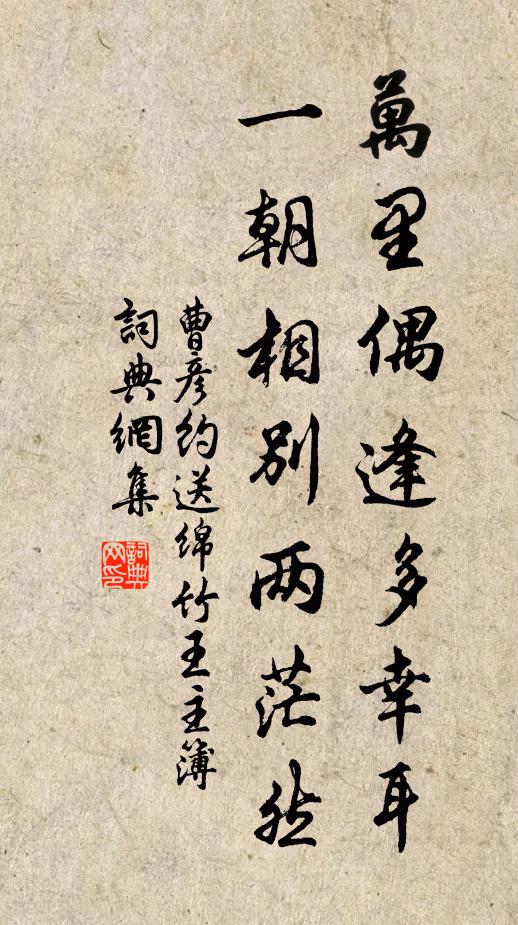 萬里偶逢多幸耳
一朝相別两茫然
曹彦約送綿竹王主簿
詞典網集
詞典网印